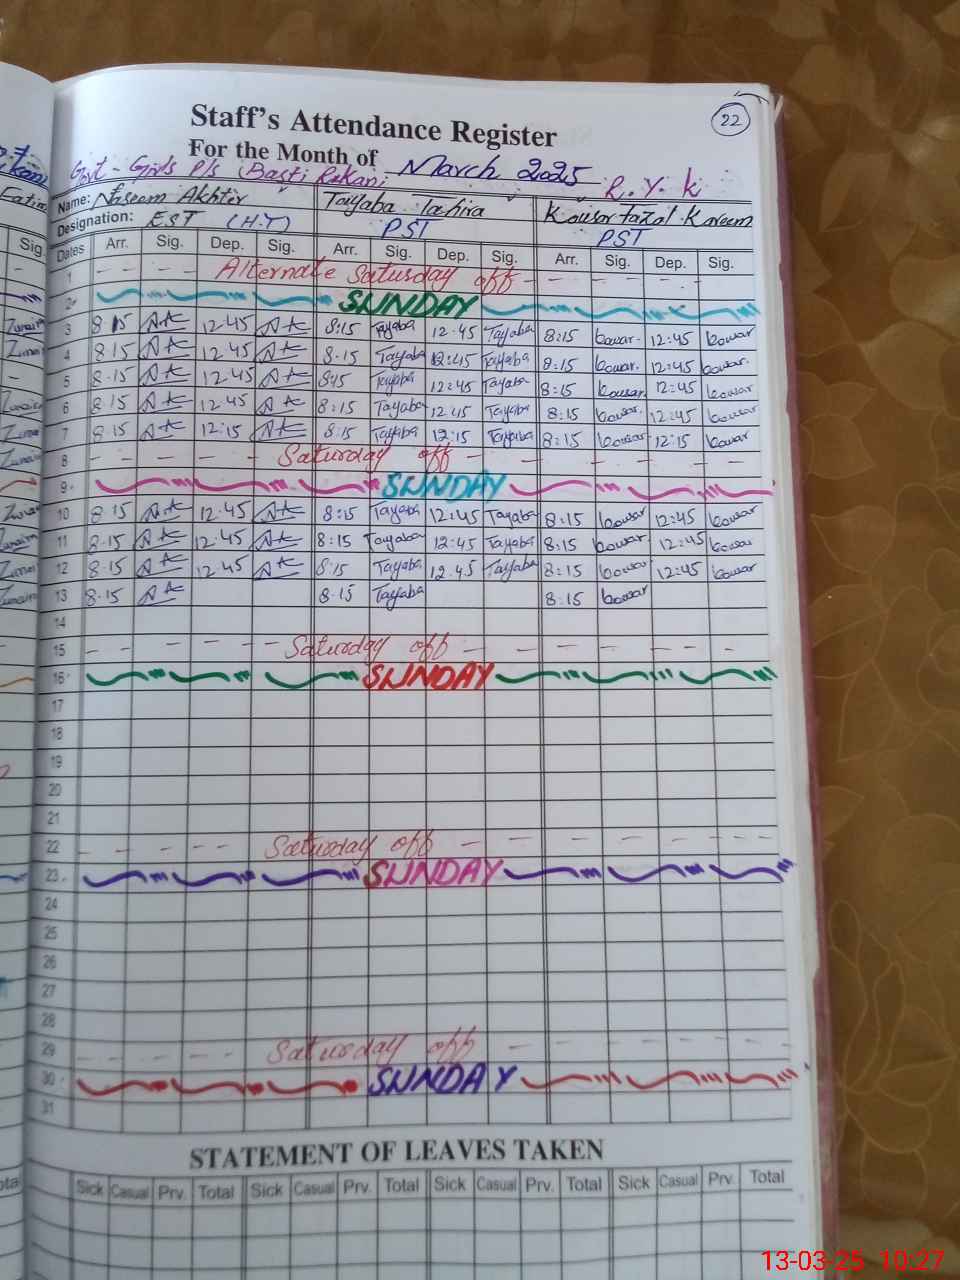 22
Staff's Attendance Register
For the Month of March 2025
Govt - Girls P/s (Basti Rakani R.Y.K
Name: Naseem Akhter Tayaba Tahira Kousar Fazal Kareem
Designation: EST (H.T) PST PST
Dates Arr. Sig. Dep. Sig. Arr. Sig. Dep. Sig. Arr. Sig. Dep. Sig.
1 Alternate Saturday off
2 SUNDAY
3 8 15 12.45 8:15 Tayaba 12:45 Tayaba 8:15 kowar. 12:45 kowar
4 8 15 12 45 8.15 Tayaba 12:45 Tayaba 8:15 kowar. 12:45 kowar.
5 8.15 12.45 8:15 Tayaba 12:45 Tayaba 8:15 kowar. 12:45 kowar
6 8.15 12.45 8:15 Tayaba 12:45 Tayaba 8:15 kowar. 12:45 kowar
7 8.15 12:15 8:15 Tayaba 12:15 Tayaba 8:15 kowar 12:15 kowar
8 Saturday off
9 SUNDAY
10 8 15 12.45 8:15 Tayaba 12:45 Tayaba 8:15 kowar 12:45 kowar
11 8.15 12.45 8:15 Tayaba 12:45 Tayaba 8:15 kowar 12:45 kowar
12 8.15 12.45 8:15 Tayaba 12.45 Tayaba 8:15 kowar 12:45 kowar
13 8.15 8.15 Tayaba 8:15 kowar
14
15 Saturday off
16 SUNDAY
17
18
19
20
21
22 Saturday off
23 SUNDAY
24
25
26
27
28
29 Saturday off
30 SUNDAY
31
STATEMENT OF LEAVES TAKEN
Sick Casual Prv. Total Sick Casual Prv. Total Sick Casual Prv. Total Sick Casual Prv. Total
13-03-25 10:27